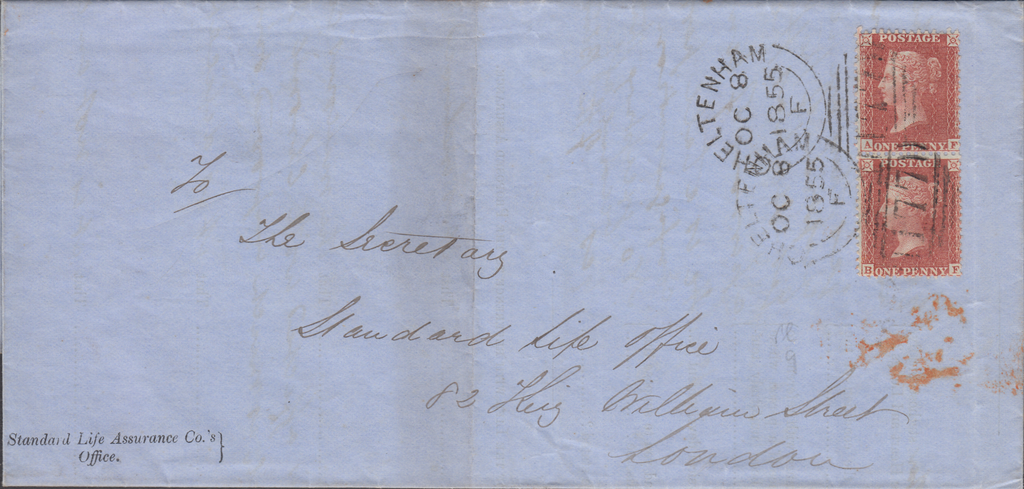 POSTAGE
A ONE PENNY F
POSTAGE
B ONE PENNY F
177
CHELTENHAM
OC 8
1855
F
CHELTENHAM
OC 8
1855
F
To
The Secretary
Standard Life Office
82 King William Street
London
9
Standard Life Assurance Co.'s
Office.